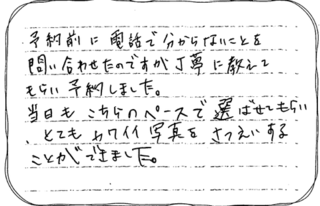 予約前に電話で分からないことを
問い合わせたのですが丁寧に教えて
もらい予約しました。
当日もこちらのペースで選ばせてもらい
、とてもカワイイ写真をさつえいする
ことができました。